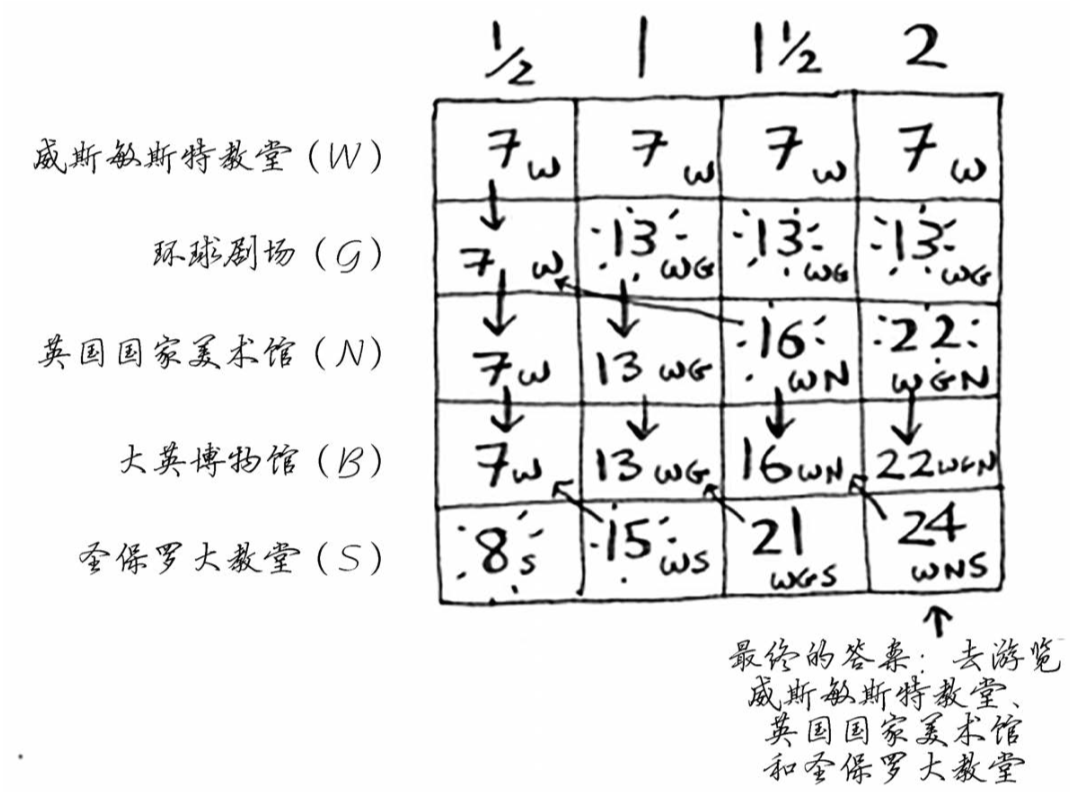 ½ 1 1½ 2
威斯敏斯特教堂（W） 7 W 7 W 7 W 7 W
环球剧场（G） 7 W 13 WG 13 WG 13 WG
英国国家美术馆（N） 7 W 13 WG 16 WN 22 WGN
大英博物馆（B） 7 W 13 WG 16 WN 22 WGN
圣保罗大教堂（S） 8 S 15 WS 21 WGS 24 WNS
最终的答案：去游览
威斯敏斯特教堂、
英国国家美术馆
和圣保罗大教堂